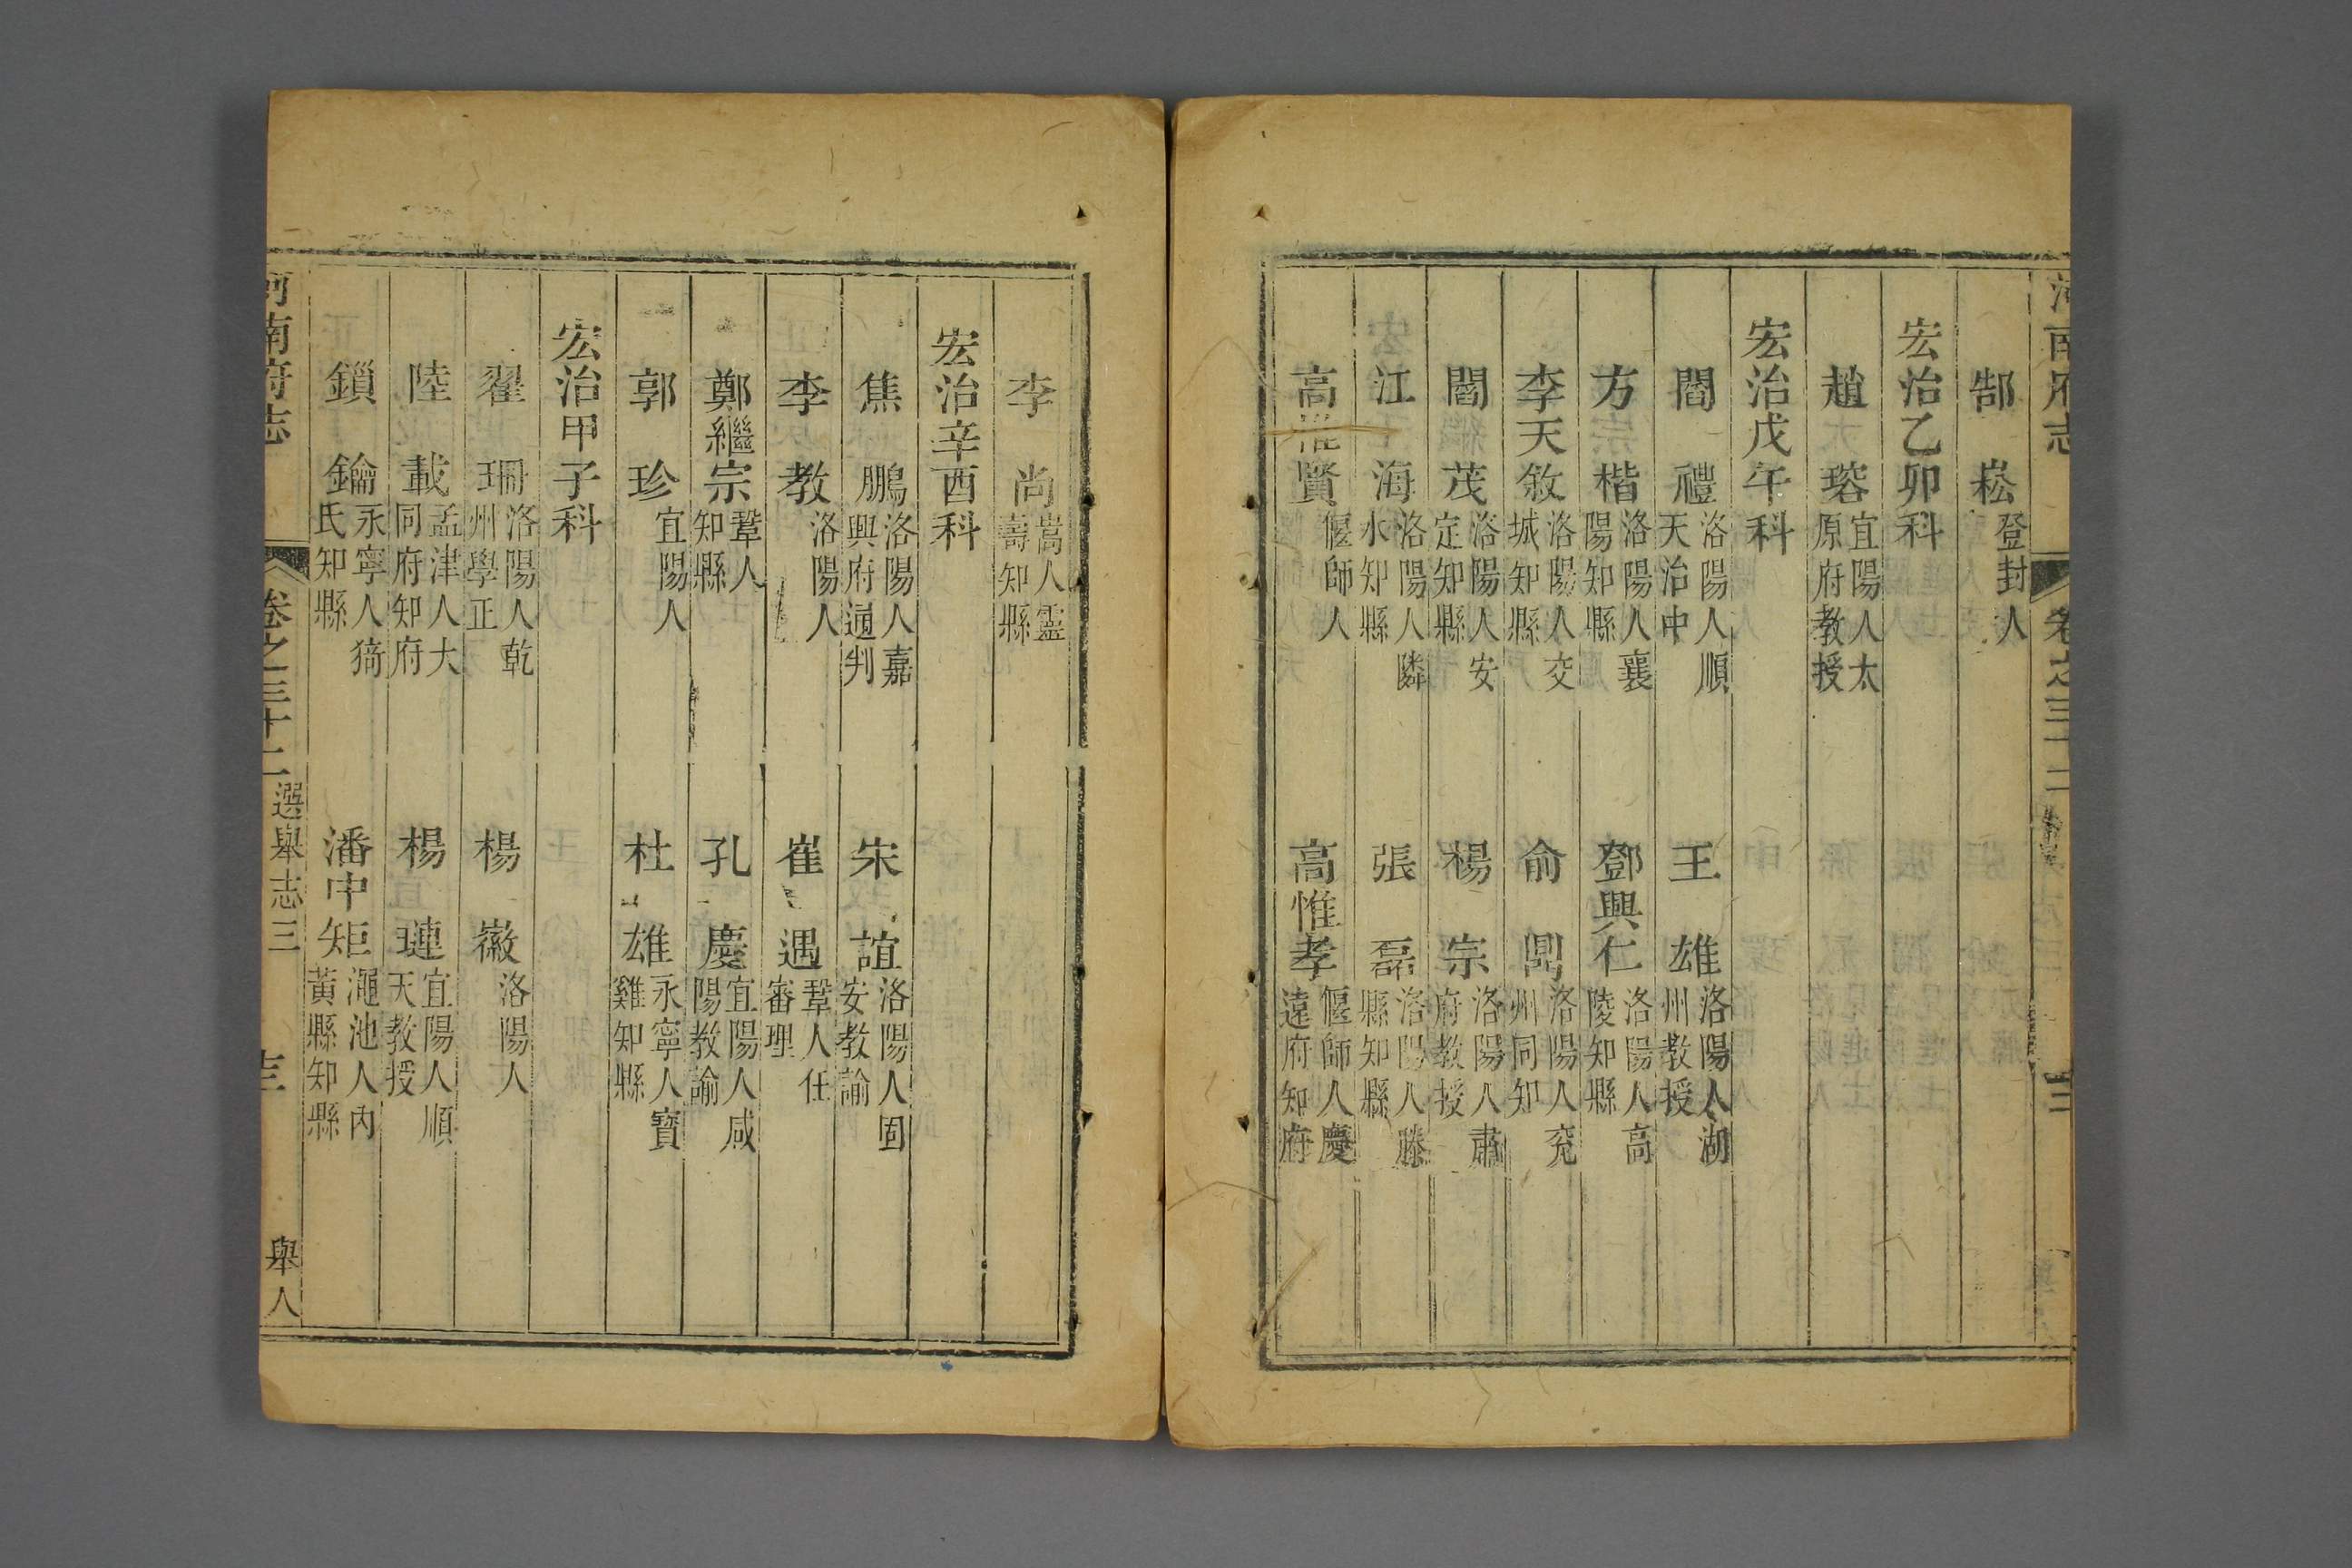 河南府志 卷之三十二
郜崧 登封人
宏治乙卯科
趙瑢 宜陽人太原府教授
宏治戊午科
閻禮 洛陽人順天治中 王雄 洛陽人湖州教授
方楷 洛陽人襄陽知縣 鄧興仁 洛陽人高陵知縣
李天敘 洛陽人交城知縣 俞鼎 洛陽人兗州同知
閻茂 洛陽人安定知縣 楊宗 洛陽人肅府教授
江海 洛陽人隣水知縣 張磊 洛陽人滕縣知縣
高惟賢 偃師人 高惟孝 偃師人慶遠府知府
李尚 嵩人靈壽知縣
宏治辛酉科
焦鵬 洛陽人嘉興府通判 宋誼 洛陽人固安教諭
李教 洛陽人 崔遇 鞏人任審理
鄭繼宗 鞏人知縣 孔慶 宜陽人咸陽教諭
郭珍 宜陽人 杜雄 永寧人寶雞知縣
宏治甲子科
翟珊 洛陽人乾州學正 楊徽 洛陽人
陸載 孟津人大同府知府 楊璉 宜陽人順天教授
鎖鑰 永寧人猗氏知縣 潘中矩 澠池人內黃縣知縣
河南府志 卷之三十二 選舉志三 舉人